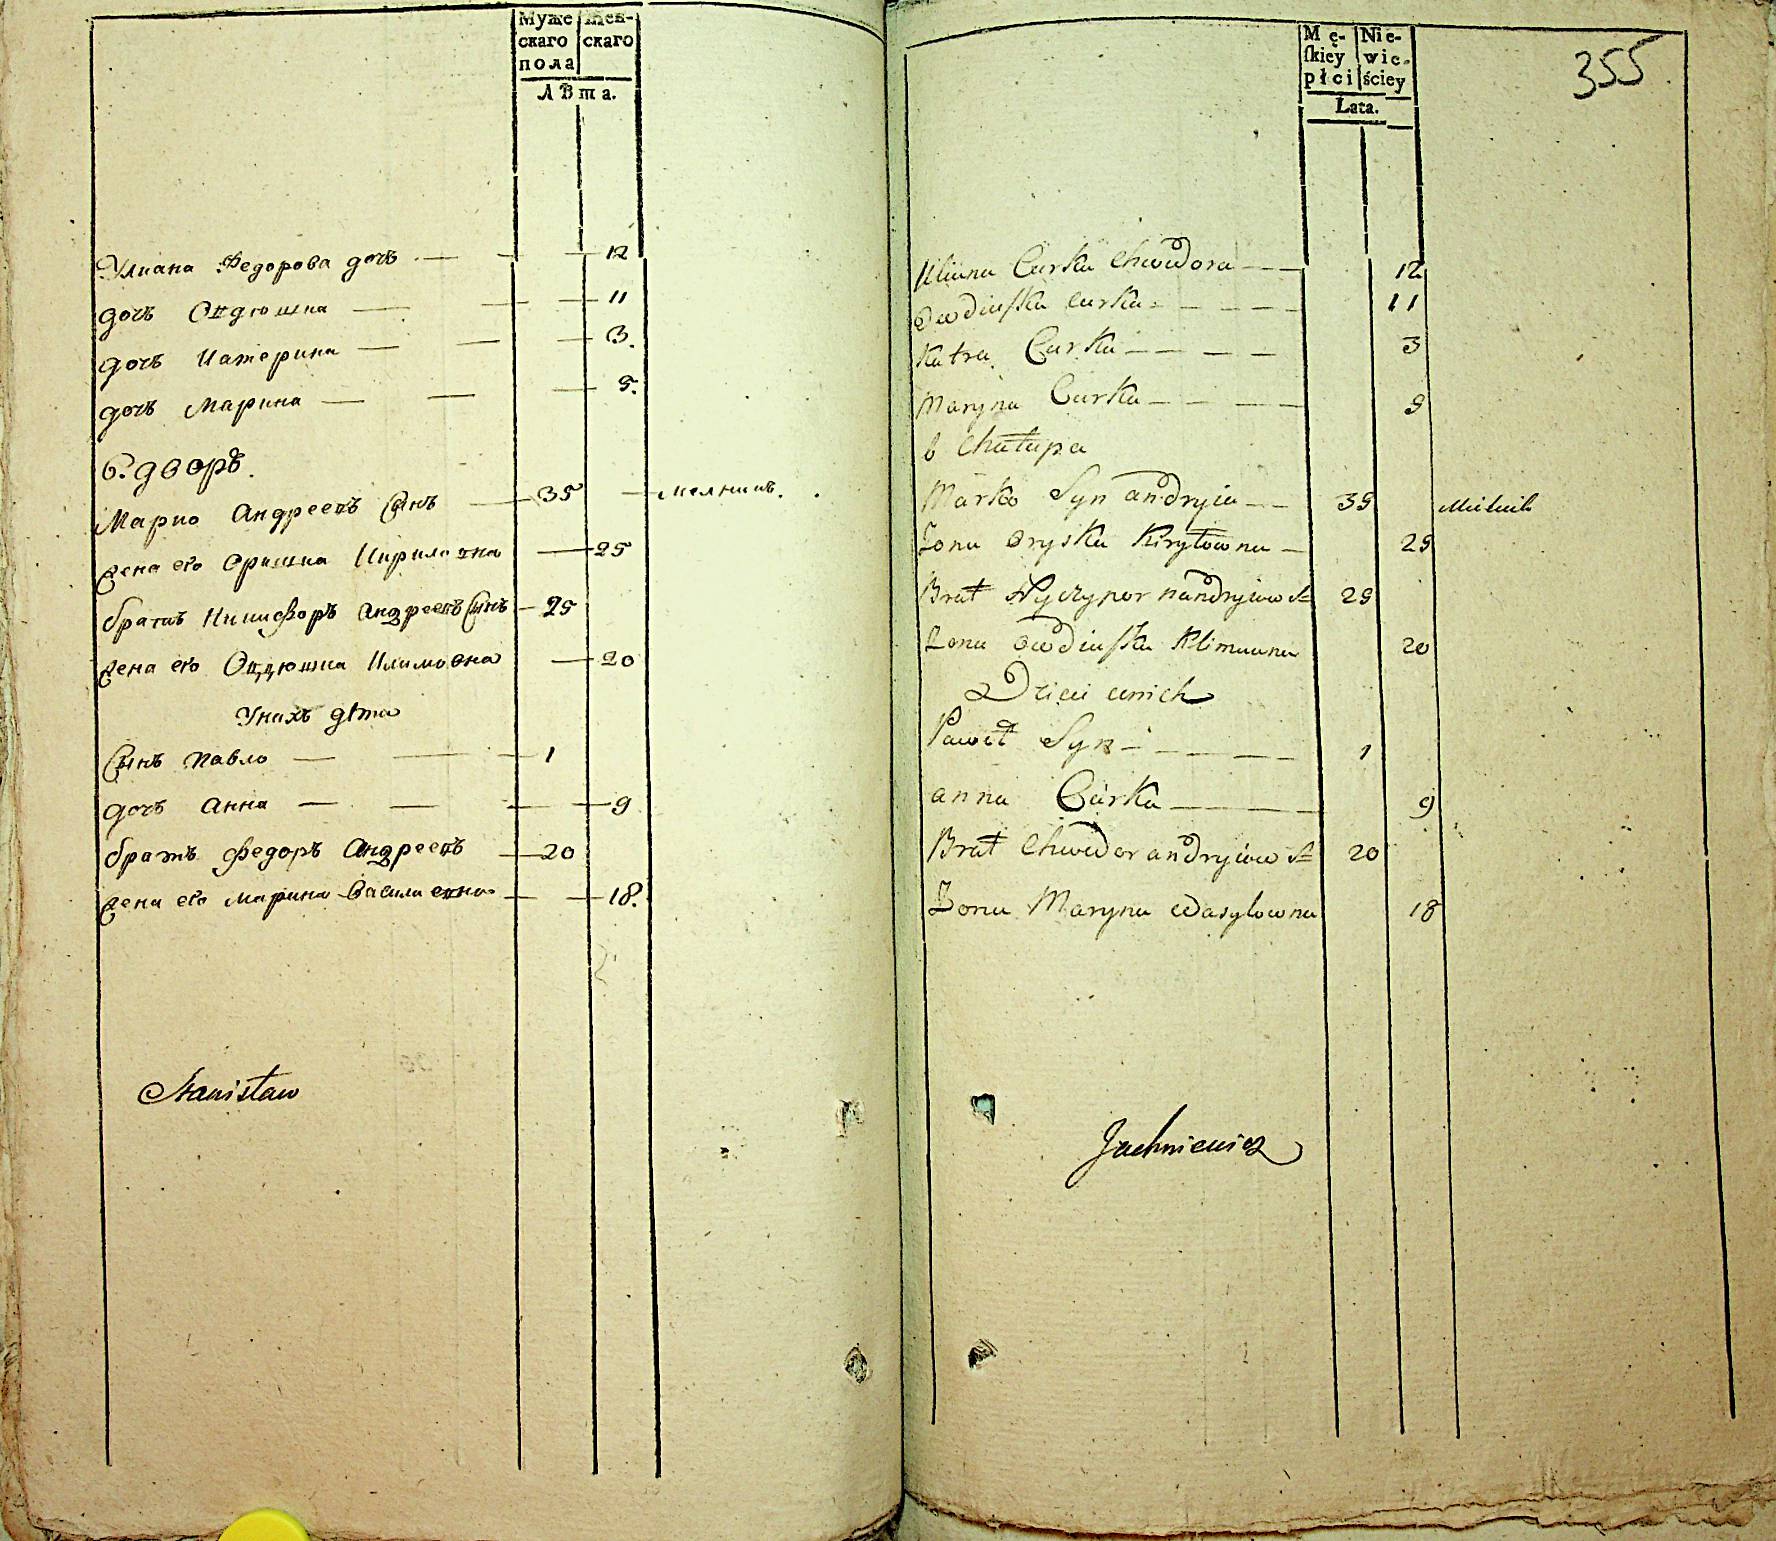 Муже Жен-
скаго скаго
пола
Лѣта.
Улиана Федорова дочь — 12
дочь Овдюшка — 11
дочь Катерина — 3.
дочь Марина — 9.
6. дворъ.
Марко Андреевъ Сынъ — 35 — мелникъ.
жена его Оришка Кириловна — 25
братъ Никифоръ Андреевъ Сынъ — 25
жена его Овдюшка Климовна — 20
Унихъ дѣти
Сынъ Павло — 1
дочь Анна — 9
братъ Федоръ Андреевъ — 20
жена его Марина Василевна — 18.
Stanisław
Mę- Nie-
ſkiey wie-
płci ściey
Lata.
355
Uliana Curka Chwedora — 12
Owdiuſka Curka — 11
Katra Curka — 3
Maryna Curka — 9
6 Chałupa
Marko Syn andryia — 35 Milnik
Zona Oryska Kiryłowna — 25
Brat Nyczypor nandryiow S — 25
Zona Owdiuſka Klimauna 20
Dzieci unich
Paweł Syn — 1
anna Curka — 9
Brat Chwedor andryiow S 20
Zona Maryna Wasylowna 18
Jachniewicz